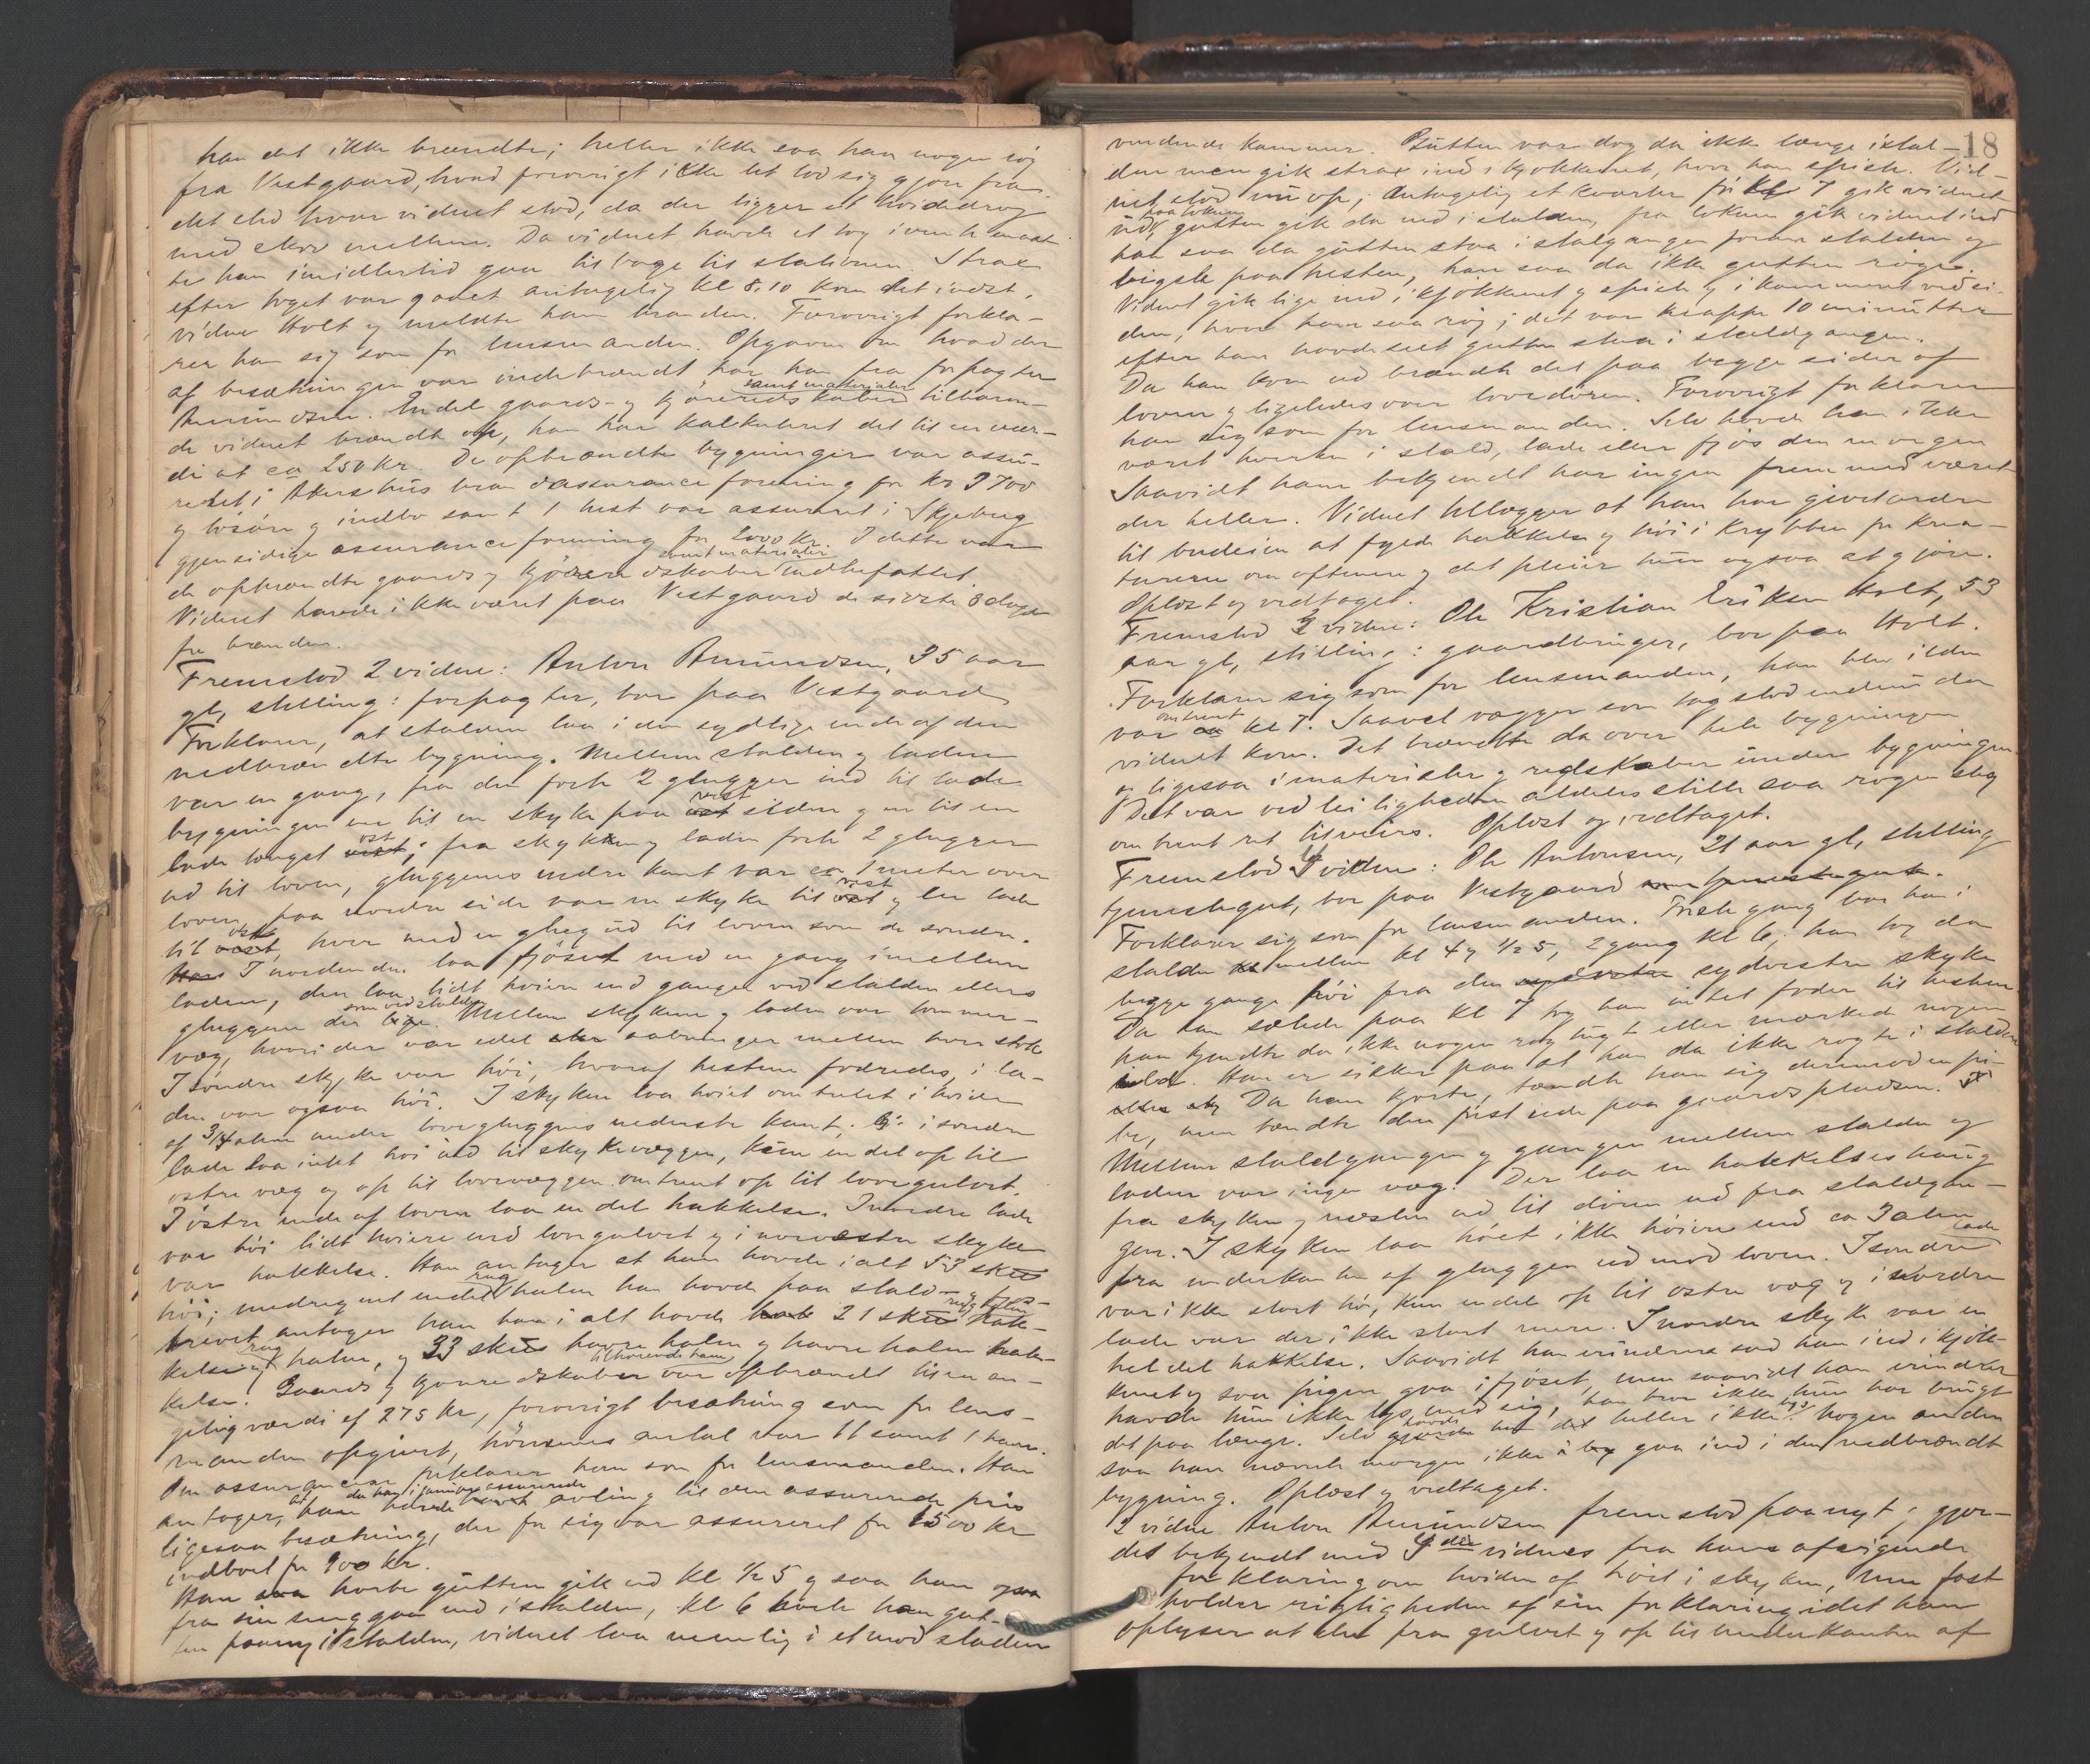 han det ikke brændte; heller ikke saa han nogen røg
fra Vestgaard, hvad forøvrigt ikke let lod sig gjøre fra
det sted hvor vidnet stod, da der ligger et høidedrag
med skov mellem. Da vidnet havde et tog ivente maat-
te han imidlertid gaa tilbage til stationen. Strax
efter toget var gaaet antagelig kl 8,10 kom det indst.
vidne Holt og meldte ham branden. Forøvrigt forkla-
rer han sig som for lensmanden. Opgaven om hvad der
af besætningen var indebrændt har han fra forpagter
Amundsen. Endel gaards- og kjøreredskaber samt materialier tilhøren-
de vidnet brændte op, han har kalkuleret det til en vær-
di af ca 250 kr. De opbrændte bygninger var assu-
reret i Akershus brandassuranceforening for kr 3700
og løsøre og indbo samt 1 hest var assureret i Skjeberg
gjensidige assuranceforening for 2000 kr. I dette var
de opbrændte gaards og kjøreredskaber samt materialier indbefattet.
Vidnet havde ikke været paa Vestgaard de sidste 8 dage
før branden.
Fremstod 2 vidne: Anton Amundsen, 35 aar
gl, stilling: forpagter, bor paa Vestgaard
Forklarer, at stalden laa i den sydlige ende af den
nedbrændte bygning. Mellem stalden og laden
var en gang, fra den førte 2 glugger ind til lade
bygningen en til en skyke paa øst vest siden og en til en
lade længst vest øst; fra skyken og laden førte 2 glugger
ud til loven, gluggenes nedre kant var ca 1 meter over
loven, paa nordre side var en skyke til øst vest og en lade
til vest øst, hver med en glug ud til loven som de søndre.
Han I nordenden laa fjøset med en gang imellem
laden, den laa lidt høiere end gangen ved stalden ellers
gluggene der lige som ved stalden. Mellem skyken og laden var tømmer-
væg, hvori der var edel aabninger mellem hver stok
I søndre skyke var høi, hvoraf hestene fodredes, i la-
den var ogsaa høi. I skyken laa høiet omtrent i høide
af 3/4 alen under loveglugges nederste kant; i søndre
lade laa intet høi ind til skykevæggen, kun en del op til
østre væg og op til lovevæggen omtrent op til lovegulvet.
I østre ende af loven laa en del hakkelse. I nordre lade
var høi lidt høiere end lovegulvet og i norvestre skyke
var hakkelse. Han antager at han havde ialt 53 sk℔
høi; medregnet endel rug halm han havde paa stald- og fjøs-
trevet antager han han i alt havde 21 sk℔ rughalm hak-
kelse og rug halm, og 33 sk℔ havre halm og havre halm hak-
kelse. Gaards og kjøreredskaber tilhørende ham var opbrændt til en an-
gelig værdi af 275 kr, forøvrigt besætning som for lens-
manden opgivet, hønsenes antal var 11 samt 1 hane.
Om assurancen forklarer han som for lensmanden. Han
antager, at han da han i januar assurerede havde avling til den assurerede pris
ligesaa besætning, der for sig var assureret for 1500 kr
indboet for 900 kr.
Han saa hørte gutten gik ud kl 1/2 5 og saa han ogsaa
fra sin seng gaa ind i stalden, kl 6 hørte han gut-
ten paany i stalden, vidnet laa nemlig i et mod stalden
18
vendende kammer. Gutten var dog da ikke længe i stal-
den men gik strax ind i kjøkkenet, hvor han spiste. Vid-
net stod nu op; antagelig et kvarter før kl 7 gik vidnet
ud paa lokum, gutten gik da ned i stalden, fra lokum gik vidnet ind
han saa da gutten staa i stalgangen foran stalden og
leigste paa hesten, han saa da ikke gutten røge.
Vidnet gik lige ind i kjøkkenet og spiste og i kammeret ved si-
den, hvor han saa røg; det var knappe 10 minutter
efter han havde seet gutten staa i staldgangen.
Da han kom ud brændte det paa begge sider af
loven og ligeledes over lovedøren. Forøvrigt forklarer
han sig som for lensmanden. Selv havde han ikke
været hverken i stald, lade eller fjøs den morgen
Saavidt ham bekjendt har ingen fremmed været
der heller. Vidnet tillægger at han har givet ordre
til budeien at fylde hakkelse og høi i krybben for krea-
turene om aftenen og det pleier hun ogsaa at gjøre.
Oplæst og vedtaget.
Fremstod 3 vidne: Ole Kristian Eriksen Holt, 53
aar gl, stilling: gaardbruger, bor paa Holt.
Forklarer sig som for lensmanden, han blev ilden
var ca omtrent kl 7. Saavel vægger som tag stod endnu da
vidnet kom. Det brændte da over hele bygningen
og ligesaa i materialier og redskaber under bygningen.
Det var ved leiligheden aldeles stille saa røgen steg
omtrent ret tilveirs. Oplæst og vedtaget.
Fremstod 4 vidne: Ole Antonsen, 21 aar gl, stilling
tjenestegut, bor paa Vestgaard som tjenestegut.
Forklarer sig som for lensmanden. Første gang var han i
stalden kl mellem kl 4 og 1/2 5, 2 gang kl 6; han tog da
begge gange høi fra den sydvestre syderstre skyke
Da han sælede paa kl 7 tog han intet foder til hesten
han kjendte da ikke nogen røglugt eller mærkede nogen
ild. Han er sikker paa at han da ikke røgte i stalden
eller Da han kjørte, tændte han sig derimod en pi-
be, men tændte den først ude paa gaardspladsen.
Mellem staldgangen og gangen mellem stalden og
laden var ingen væg. Der laa en hakkelseshaug
fra skyken og næsten ud til døren ud fra staldgan-
gen. I skyken laa høiet ikke høiere end ca 3 alen
fra underkanten af gluggen ud mod loven. I søndre lade
var ikke stort hø, kun endel op til østre væg og i nordre
lade var der ikke stort mere. I nordre skyke var en
hel del hakkelse. Saavidt han erindrer sad han ind i kjøk-
kenet og saa pigen gaa i fjøset, men saavidt han erindrer
havde hun ikke lys med sig, han tror ikke hun har brugt
det paa længe. Selv havde han heller ikke lys. Nogen anden
saa han nævnte morgen ikke gaa ind i den nedbrændte
bygning. Oplæst og vedtaget.
2 vidne Anton Amundsen fremstod paanyt; gjor-
des bekjendt med 4de vidnes fra hans afvigende
forklaring om høiden af høiet i skyken, men fast
holder rigtigheden af sin forklaring idet han
oplyser at der fra gulvet og op til underkanten af